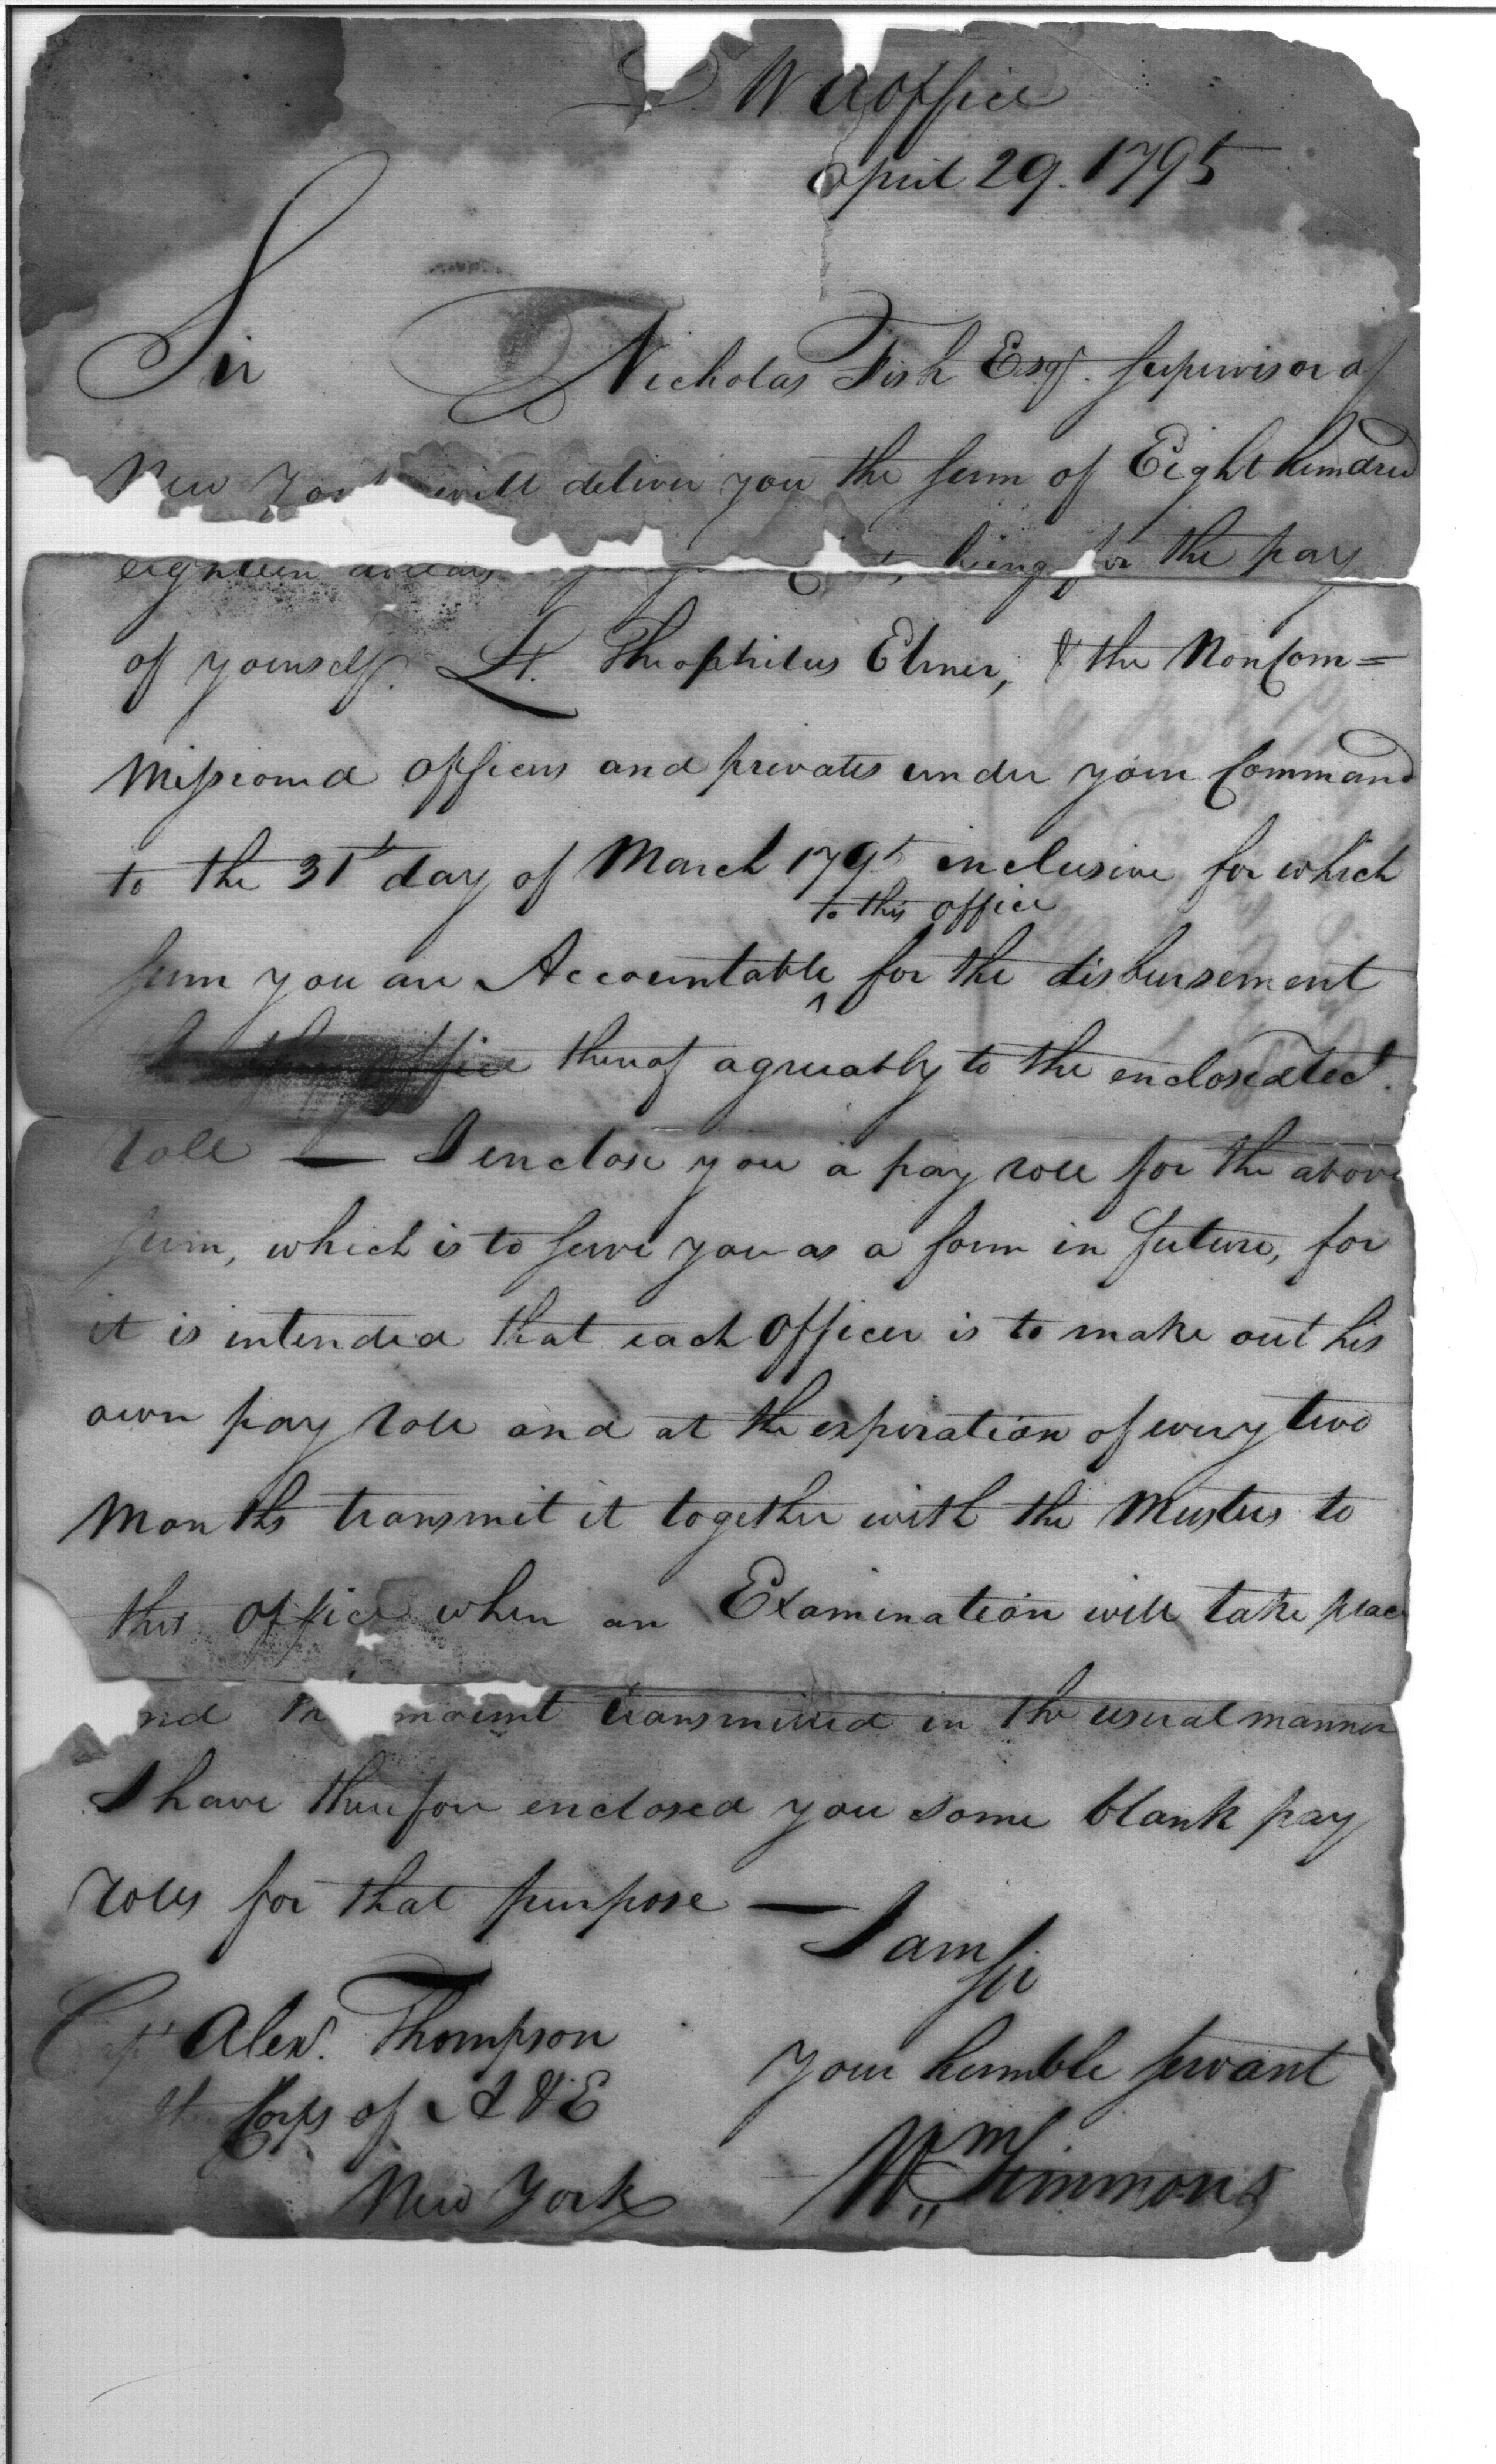 D. W Office
April 29. 1795
Sir Nicholas Fish Esqr. Supervisor of
New York will deliver you the sum of Eight hundred
eighteen dollars being for the pay
of yourself. Lt. Theophilus Elmer, & the Noncom=
missioned officers and privates under your Command
to the 31st day of March 1795 inclusive for which
to this office
sum you are Accountable ^ for the disbursement
office thereof agreeably to the enclosed
roll — I enclose you a pay roll for the above
sum, which is to serve you as a form in future, for
it is intended that each Officer is to make out his
own pay roll and at the expiration of every two
Months transmit it together with the Musters to
this office when an Examination will take place
nd th mount transmitted in the usual manner
I have therefore enclosed you some blank pay
rolls for that purpose —
I am
Sir
Your humble servant
Wm Simmons
Capt Alexr. Thompson
Corps of A & E
New York